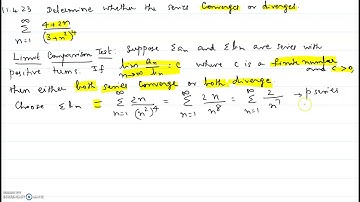 11.4.23 Determine whether the series Converges or diverges.
∞ Σ n=1 4+2n / (3+n²)⁴
Limit Comparison Test: Suppose Σan and Σbn are series with
positive terms. If lim n→∞ an/bn = c where c is a finite number and c>0,
then either both series Converge or both diverge
Choose Σbn = ∞ Σ n=1 2n/(n²)⁴ = ∞ Σ n=1 2n/n⁸ = ∞ Σ n=1 2/n⁷ → p series